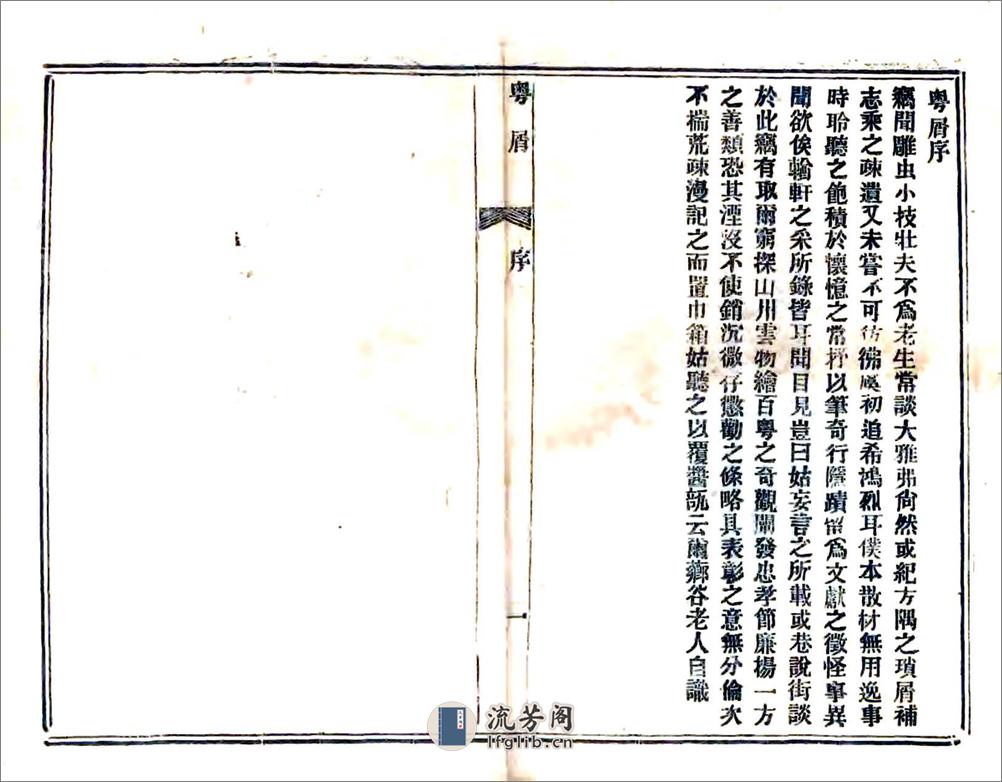 粵屑序
竊聞雕虫小技壯夫不爲老生常談大雅弗尙然或紀方隅之瑣屑補
志乘之疎遺又未嘗不可彷彿虞初追希鴻烈耳僕本散材無用逸事
時聆聽之飽積於懷憶之常抒以筆奇行隱蹟留爲文獻之徵怪事異
聞欲俟輶軒之采所錄皆耳聞目見豈曰姑妄言之所載或巷說街談
於此竊有取爾窮探山川雲物繪百粵之奇觀闡發忠孝節廉揚一方
之善類恐其湮沒不使銷沉微存懲勸之條略具表彰之意無分倫次
不揣荒疎漫記之而置巾箱姑聽之以覆醬瓿云爾薌谷老人自識
粵屑 序 一
流芳阁
lfglib.cn